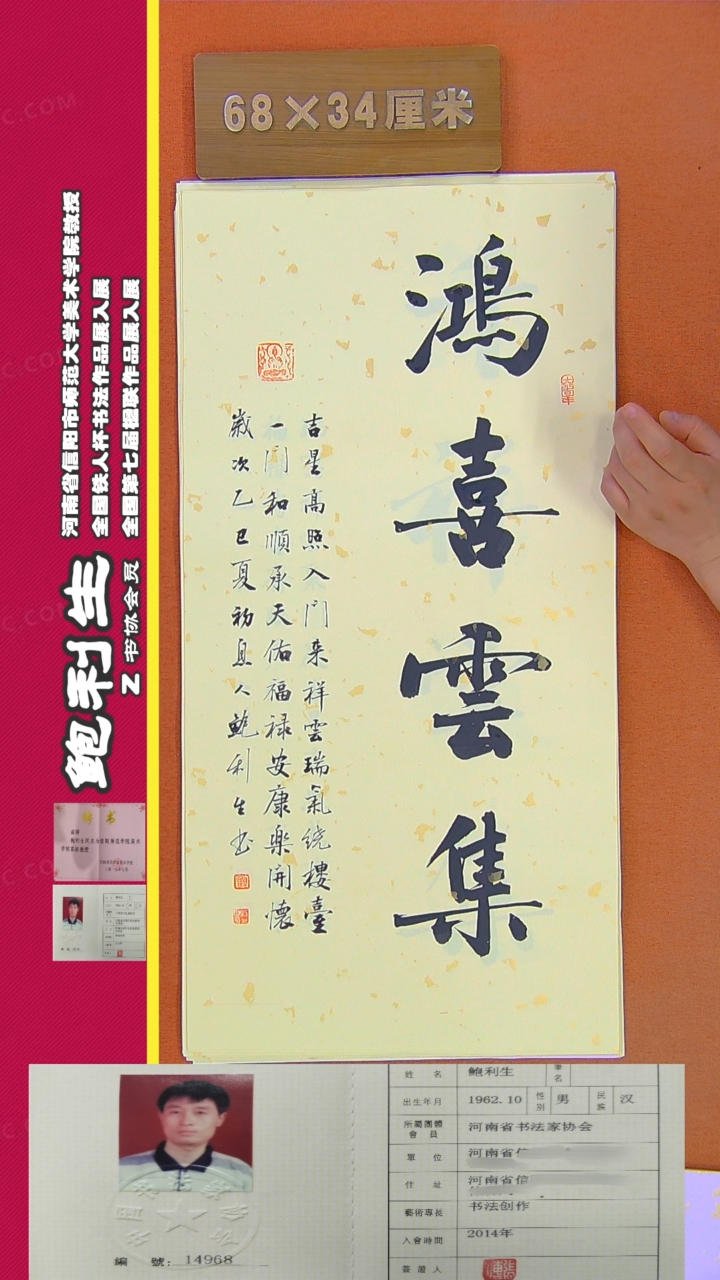 68×34厘米
鴻喜雲集
吉星高照入门来祥雲瑞氣绕樓臺
一门和順承天佑福禄安康樂開懷
歲次乙巳夏初息人鲍利生书
河南省信阳市师范大学美术学院教授
全国铁人杯书法作品展入展
全国第七届楹联作品展入展
鲍利生
Z 书协会员
聘书
C.COM
姓 名 鲍利生 筆名
出生年月 1962.10 性別 男 民族 汉
所屬團體會員 河南省书法家协会
單 位 河南省信
住 址 河南省信
藝術專長 书法创作
入會時間 2014年
簽證人
編 號: 14968